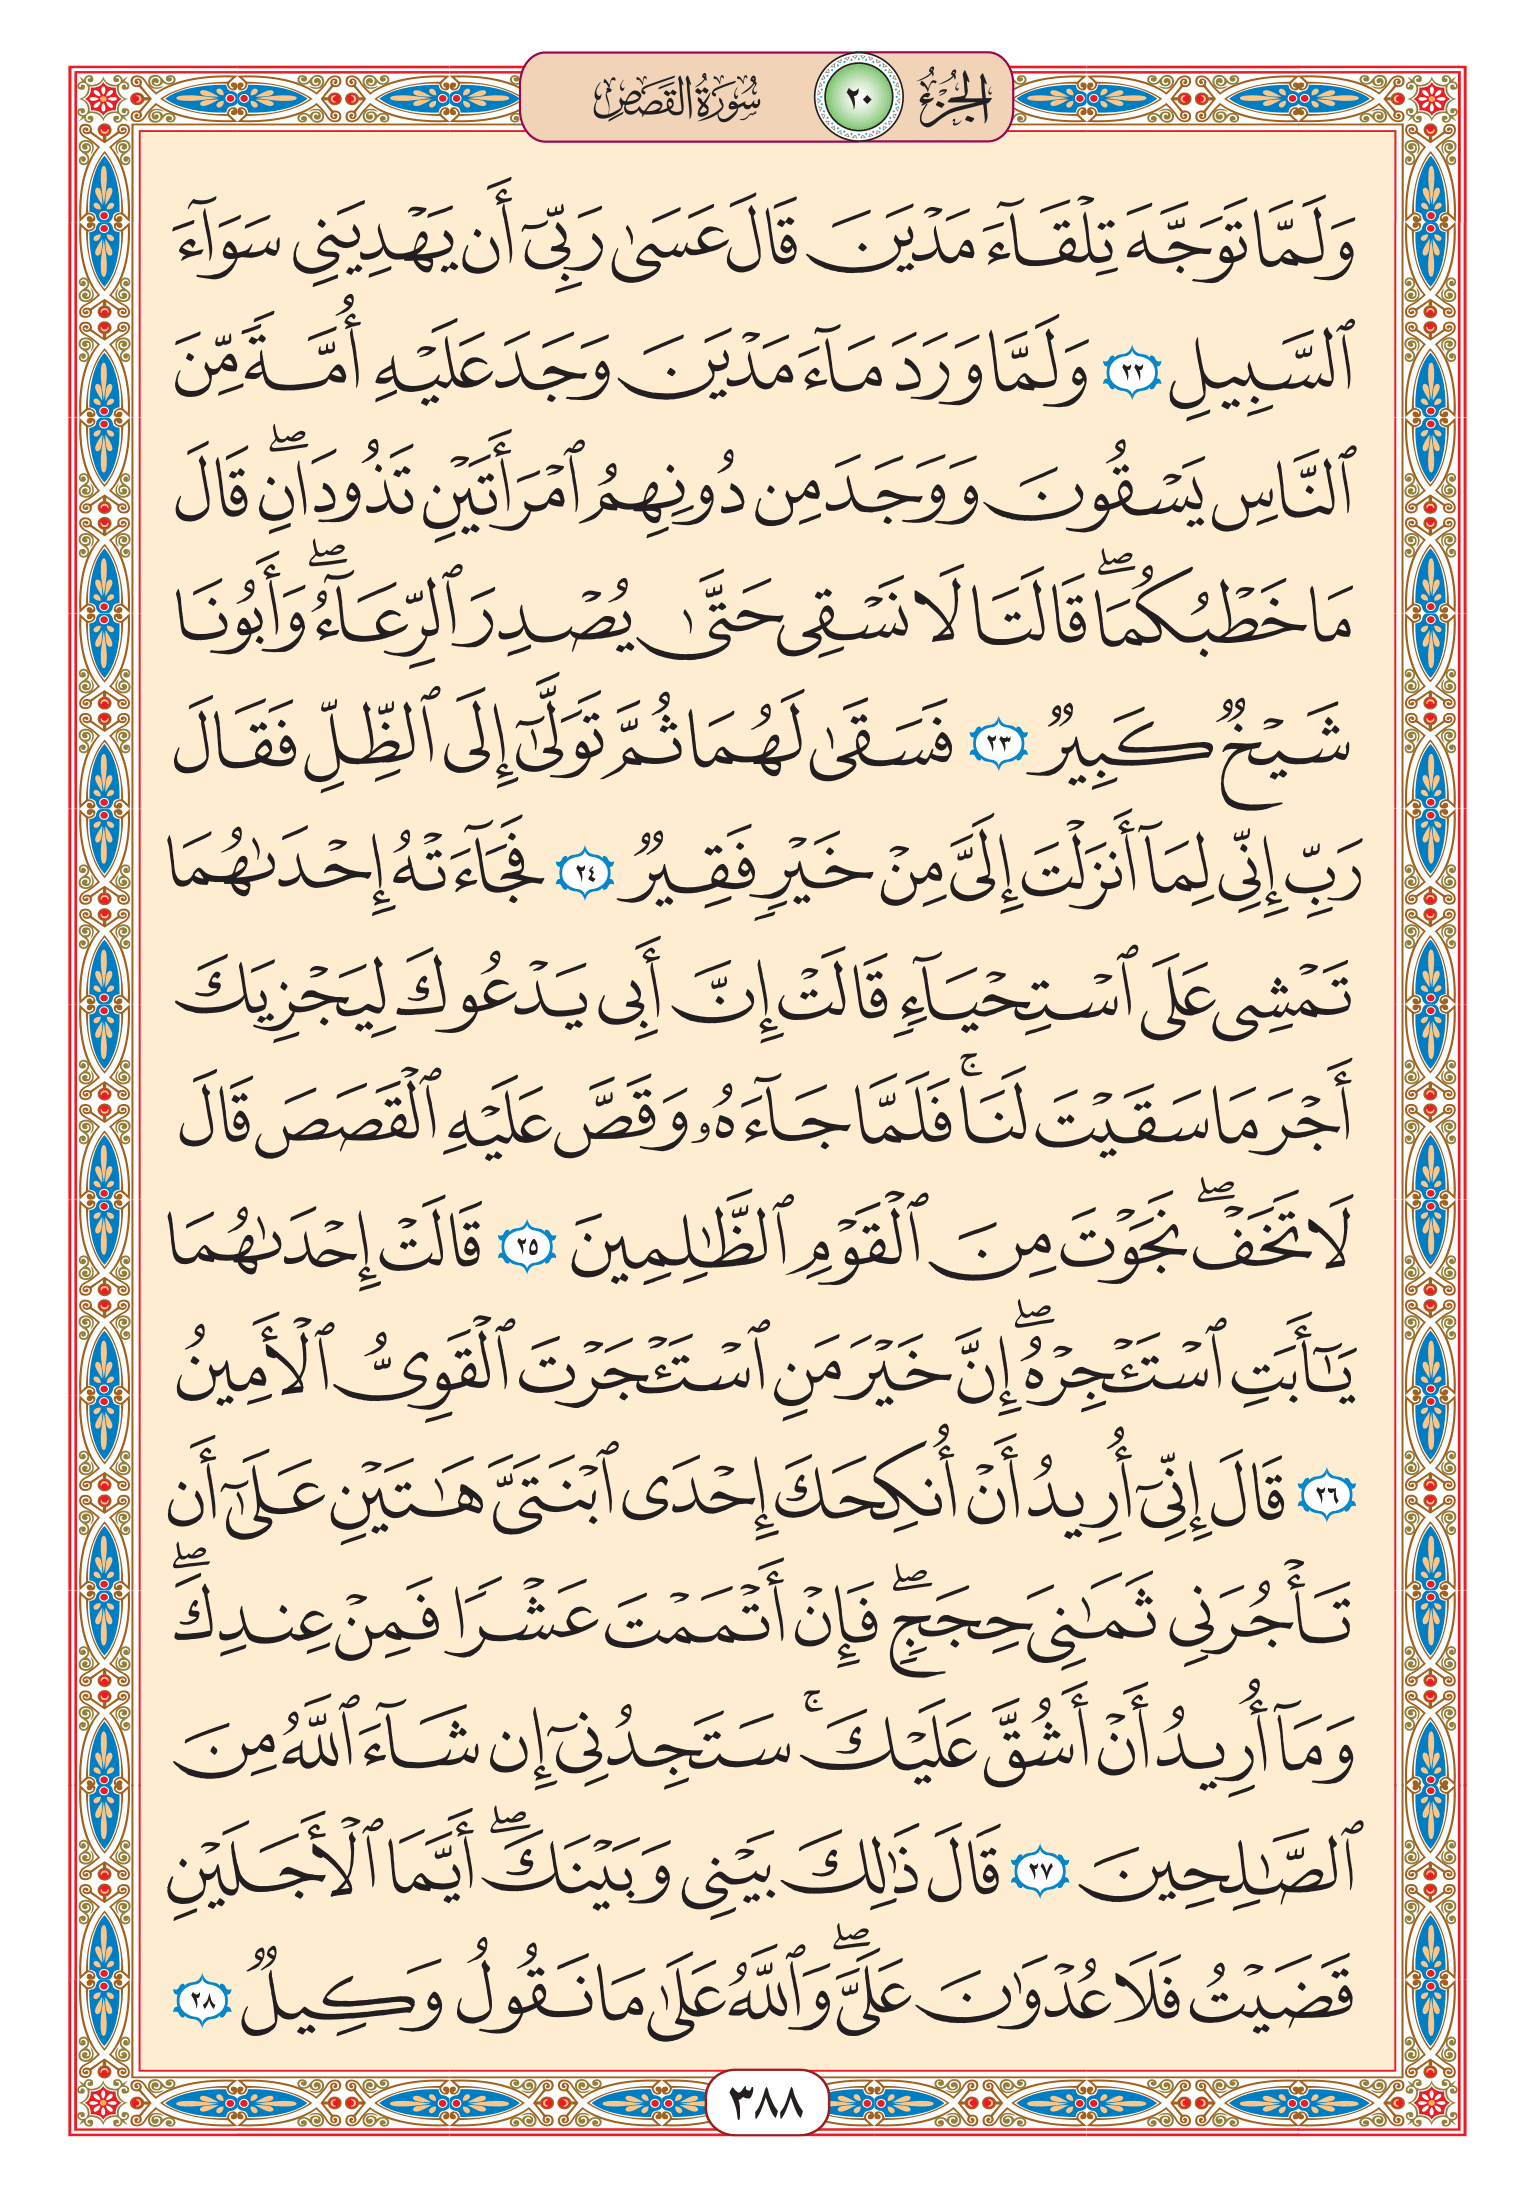 الجزء ٢٠ سورة القصص
وَلَمَّا تَوَجَّهَ تِلْقَآءَ مَدْيَنَ قَالَ عَسَىٰ رَبِّىٓ أَن يَهْدِيَنِى سَوَآءَ
ٱلسَّبِيلِ ٢٢ وَلَمَّا وَرَدَ مَآءَ مَدْيَنَ وَجَدَ عَلَيْهِ أُمَّةً مِّنَ
ٱلنَّاسِ يَسْقُونَ وَوَجَدَ مِن دُونِهِمُ ٱمْرَأَتَيْنِ تَذُودَانِۖ قَالَ
مَا خَطْبُكُمَاۖ قَالَتَا لَا نَسْقِى حَتَّىٰ يُصْدِرَ ٱلرِّعَآءُۖ وَأَبُونَا
شَيْخٌ كَبِيرٌ ٢٣ فَسَقَىٰ لَهُمَا ثُمَّ تَوَلَّىٰٓ إِلَى ٱلظِّلِّ فَقَالَ
رَبِّ إِنِّى لِمَآ أَنزَلْتَ إِلَىَّ مِنْ خَيْرٍ فَقِيرٌ ٢٤ فَجَآءَتْهُ إِحْدَىٰهُمَا
تَمْشِى عَلَى ٱسْتِحْيَآءٍ قَالَتْ إِنَّ أَبِى يَدْعُوكَ لِيَجْزِيَكَ
أَجْرَ مَا سَقَيْتَ لَنَاۚ فَلَمَّا جَآءَهُۥ وَقَصَّ عَلَيْهِ ٱلْقَصَصَ قَالَ
لَا تَخَفْۖ نَجَوْتَ مِنَ ٱلْقَوْمِ ٱلظَّٰلِمِينَ ٢٥ قَالَتْ إِحْدَىٰهُمَا
يَٰٓأَبَتِ ٱسْتَـْٔجِرْهُۖ إِنَّ خَيْرَ مَنِ ٱسْتَـْٔجَرْتَ ٱلْقَوِىُّ ٱلْأَمِينُ
٢٦ قَالَ إِنِّىٓ أُرِيدُ أَنْ أُنكِحَكَ إِحْدَى ٱبْنَتَىَّ هَٰتَيْنِ عَلَىٰٓ أَن
تَأْجُرَنِى ثَمَٰنِىَ حِجَجٍۖ فَإِنْ أَتْمَمْتَ عَشْرًا فَمِنْ عِندِكَۖ
وَمَآ أُرِيدُ أَنْ أَشُقَّ عَلَيْكَۚ سَتَجِدُنِىٓ إِن شَآءَ ٱللَّهُ مِنَ
ٱلصَّٰلِحِينَ ٢٧ قَالَ ذَٰلِكَ بَيْنِى وَبَيْنَكَۖ أَيَّمَا ٱلْأَجَلَيْنِ
قَضَيْتُ فَلَا عُدْوَٰنَ عَلَىَّۖ وَٱللَّهُ عَلَىٰ مَا نَقُولُ وَكِيلٌ ٢٨
٣٨٨